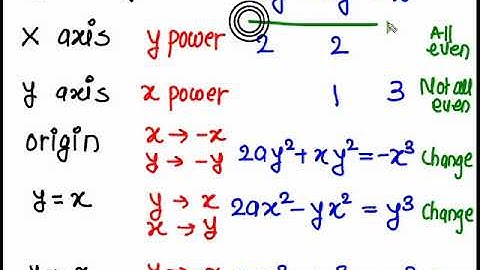 X axis y power 2 2 All even
y axis x power 1 3 Not all even
origin x → -x y → -y 2ay² + xy² = -x³ Change
y = x y → x x → y 2ax² - yx² = y³ Change